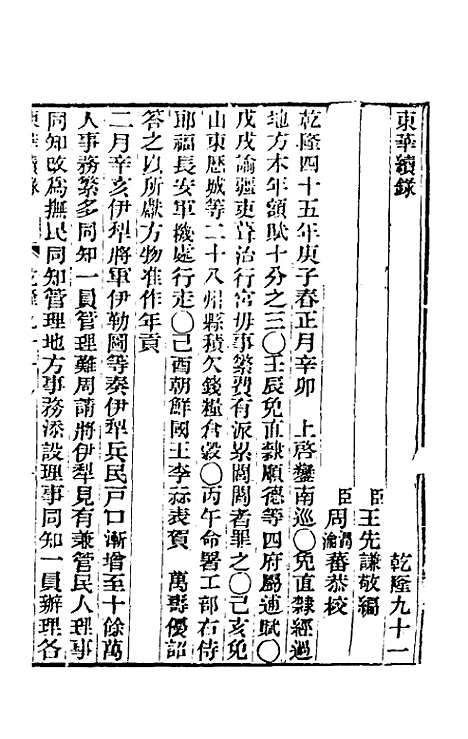 東華續錄　乾隆九十一
臣王先謙敬編
臣周潤蕃周瀹蕃恭校
乾隆四十五年庚子春正月辛卯　上啓鑾南巡〇免直隸經過
地方本年額賦十分之三〇壬辰免直隸順德等四府屬逋賦〇
戊戌諭疆吏葺治行宮毋事繁費有派累閭閻者罪之〇己亥免
山東歷城等二十八州縣積欠錢糧倉穀〇丙午命署工部右侍
郎福長安軍機處行走〇己酉朝鮮國王李祘表賀　萬壽優詔
答之以所獻方物准作年貢
二月辛亥伊犁將軍伊勒圖等奏伊犁兵民戶口漸增至十餘萬
人事務繁多同知一員管理難周請將伊犁見有兼管民人理事
同知改爲撫民同知管理地方事務添設理事同知一員辦理各
東華續錄　乾隆九十一